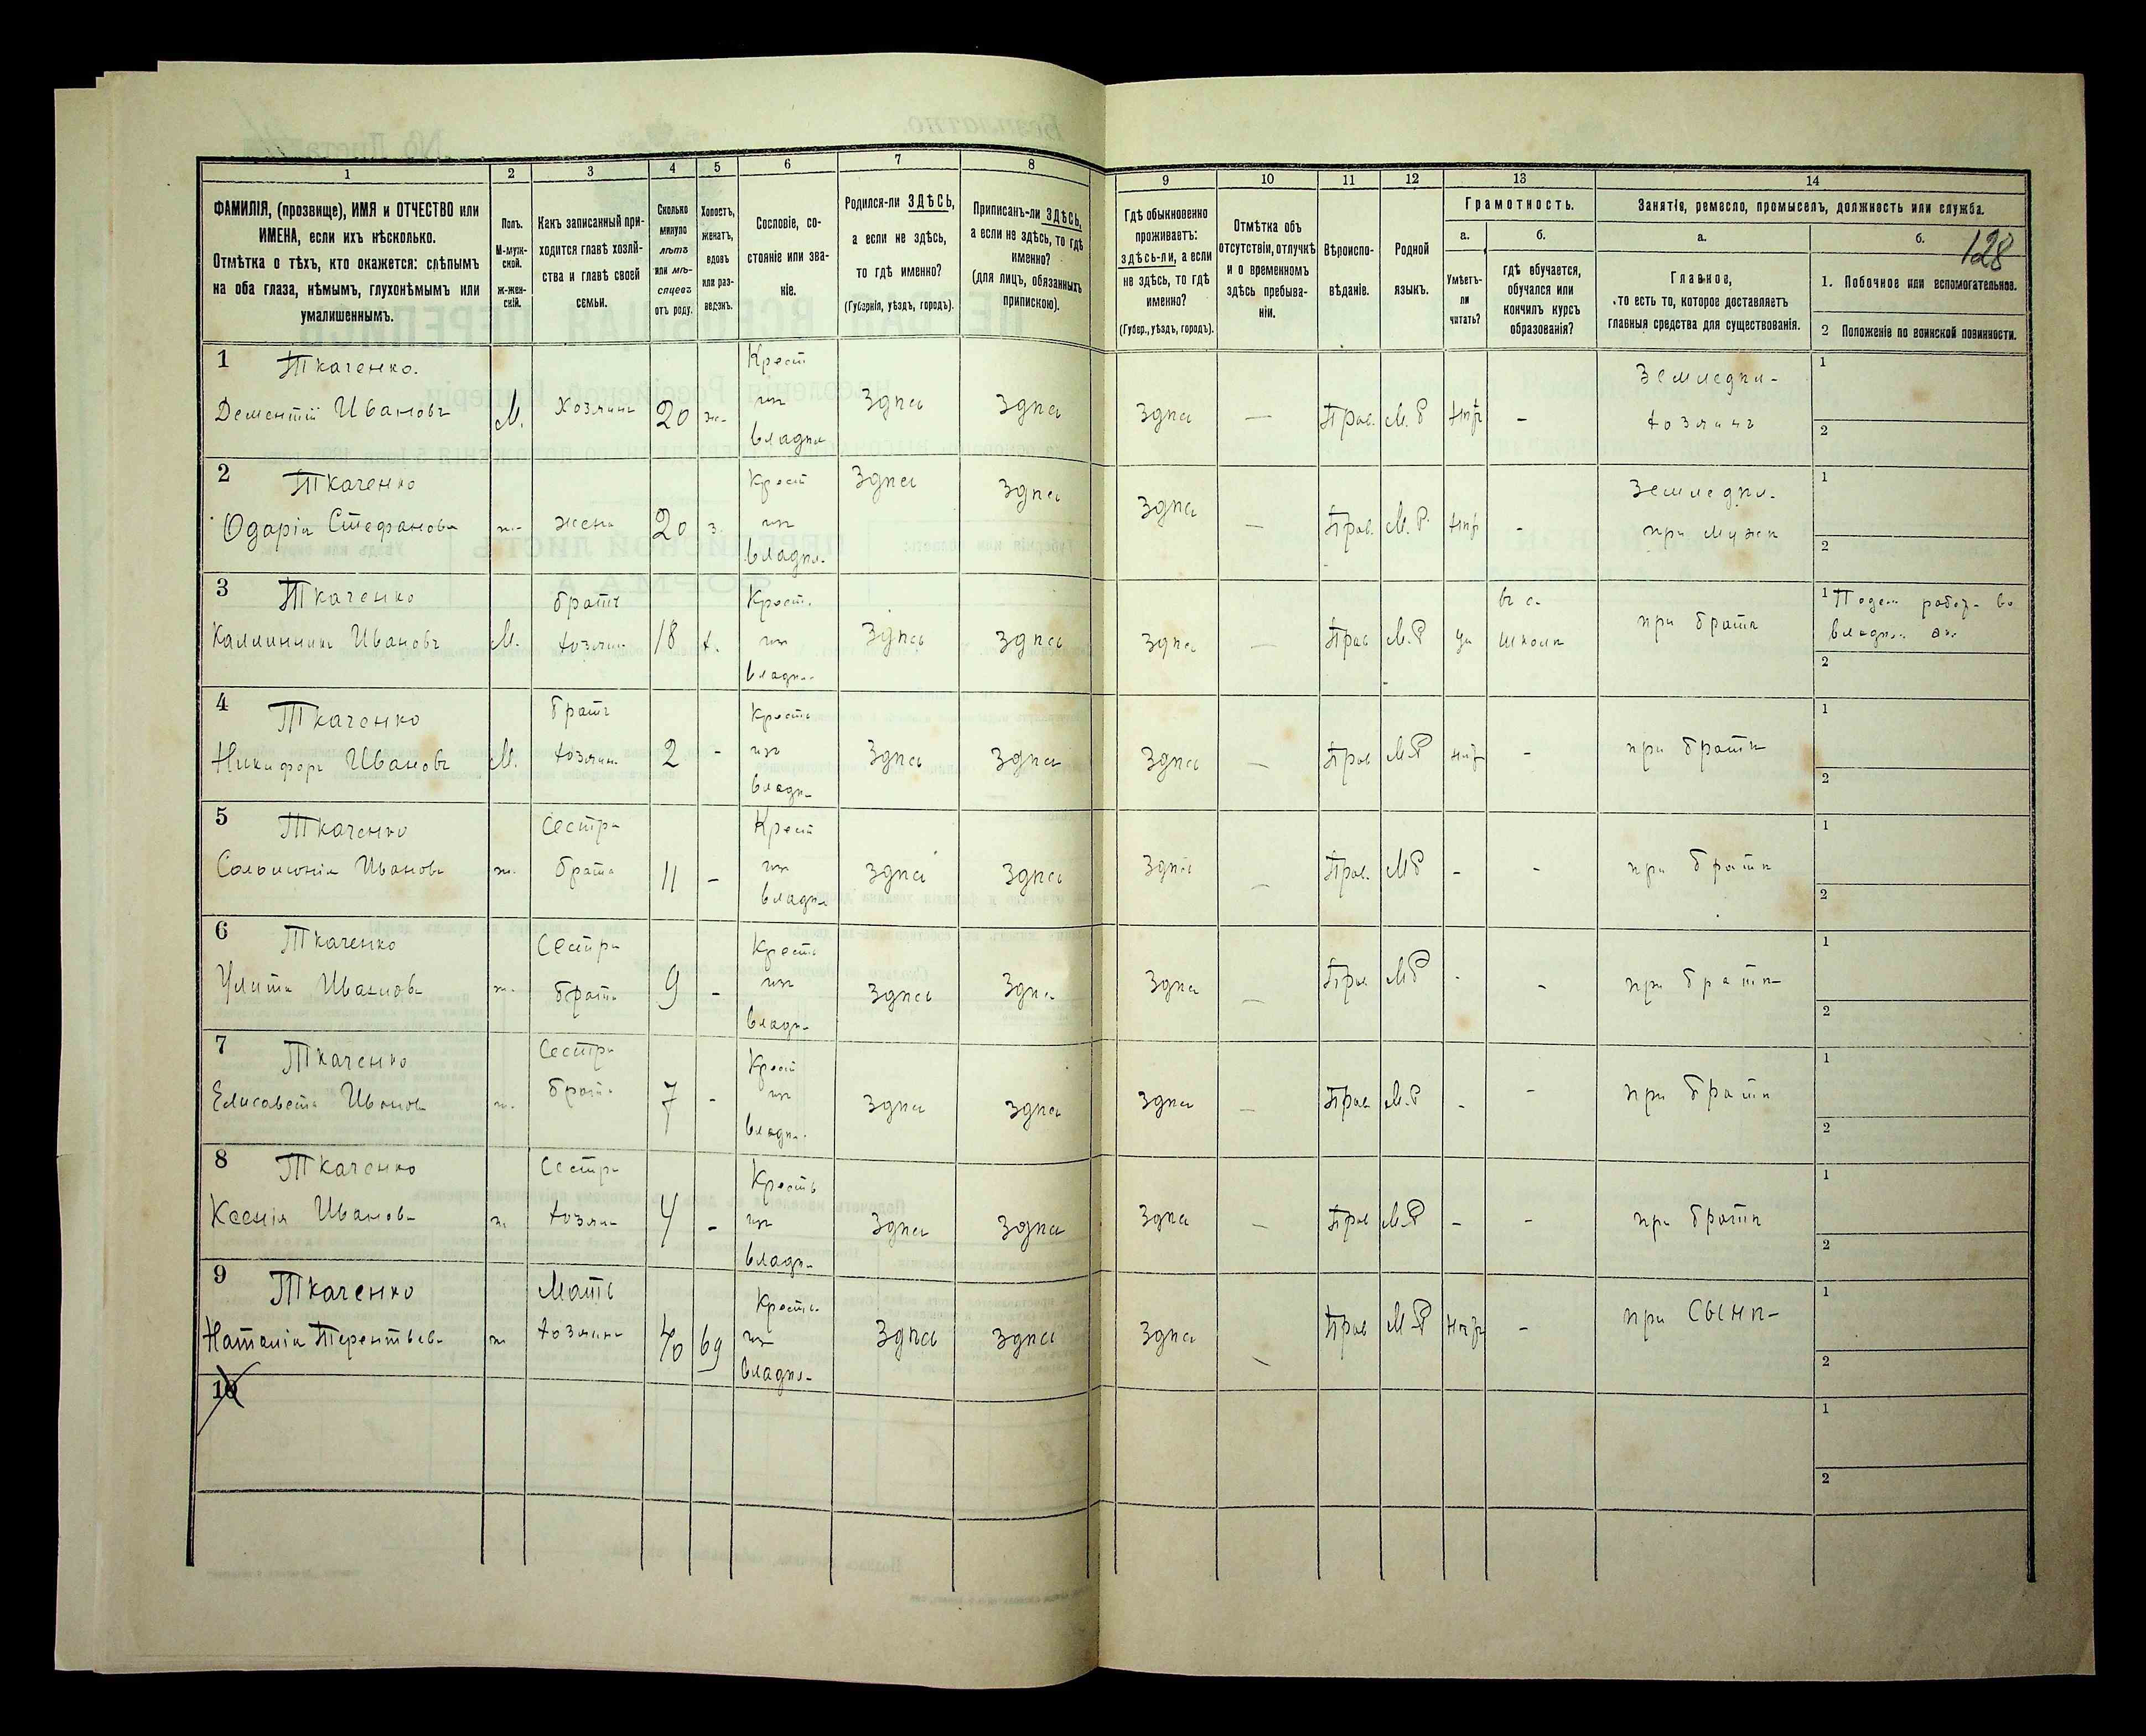 128
1 2 3 4 5 6 7 8 9 10 11 12 13 14
ФАМИЛІЯ, (прозвище), ИМЯ и ОТЧЕСТВО или
ИМЕНА, если ихъ нѣсколько.
Отмѣтка о тѣхъ, кто окажется: слѣпымъ
на оба глаза, нѣмымъ, глухонѣмымъ или
умалишеннымъ.
Полъ.
М-муж-
ской.
Ж-жен-
скій.
Какъ записанный при-
ходится главѣ хозяй-
ства и главѣ своей
семьи.
Сколько
минуло
лѣтъ
или мѣ-
сяцевъ
отъ роду.
Холостъ,
женатъ,
вдовъ
или раз-
веденъ.
Сословіе, со-
стояніе или зва-
ніе.
Родился-ли ЗДѢСЬ,
а если не здѣсь,
то гдѣ именно?
(Губернія, уѣздъ, городъ).
Приписанъ-ли ЗДѢСЬ,
а если не здѣсь, то гдѣ
именно?
(для лицъ, обязанныхъ
припискою).
Гдѣ обыкновенно
проживаетъ:
здѣсь-ли, а если
не здѣсь, то гдѣ
именно?
(Губер., уѣздъ, городъ).
Отмѣтка объ
отсутствіи, отлучкѣ
и о временномъ
здѣсь пребыва-
ніи.
Вѣроиспо-
вѣданіе.
Родной
языкъ.
Грамотность.
а.
Умѣетъ-
ли
читать?
б.
гдѣ обучается,
обучался или
кончилъ курсъ
образованія?
Занятія, ремесло, промыселъ, должность или служба.
а.
Главное,
то есть то, которое доставляетъ
главныя средства для существованія.
б.
1. Побочное или вспомогательное.
2 Положеніе по воинской повинности.
1 Ткаченко. Крест Земледѣл- 1
Дементій Ивановъ М. Хозяинъ 20 ж. изъ Здѣсь Здѣсь Здѣсь — Прав. М. Р нѣтъ - хозяинъ
владѣл 2
2 Ткаченко Крест Здѣсь Здѣсь Земледѣл. 1
Одарія Стефанова ж. жена 20 з. изъ Здѣсь — Прав. М. Р. нѣтъ - при мужѣ
владѣл. 2
3 Ткаченко братъ Крест. въ с. 1 Поден работ. во
Каллиникъ Ивановъ М. хозяин 18 х. изъ Здѣсь Здѣсь Здѣсь — Прав М. Р да школѣ при братѣ владѣл. эк.
владѣл. 2
4 Ткаченко братъ Крестъ 1
Никифоръ Ивановъ М. хозяин. 2 - изъ Здѣсь Здѣсь Здѣсь — Прав М Р нѣтъ - при братѣ
владѣ. 2
5 Ткаченко Сестра Крест 1
Соломонія Иванова ж. брата 11 - изъ Здѣсь Здѣсь Здѣсь — Прав. М Р - - при братѣ
владѣл 2
6 Ткаченко Сестра Крестъ 1
Улита Иванова ж. брата 9 - изъ Здѣсь Здѣсь Здѣсь — Прав М Р - - при братѣ
владѣ. 2
7 Ткаченко Сестра Крест 1
Елисавета Иванов ж. брата 7 - изъ Здѣсь Здѣсь Здѣсь — Прав М. Р - - при братѣ
владѣл. 2
8 Ткаченко Сестра Крестъ 1
Ксенія Иванов ж хозяин 4 - изъ Здѣсь Здѣсь Здѣсь — Прав М. Р - - при братѣ
владѣ. 2
9 Ткаченко Мать Крестъ. 1
Наталія Терентьев ж хозяина 40 вд изъ Здѣсь Здѣсь Здѣсь — Прав М Р нѣтъ - при Сынѣ
владѣл. 2
10 1
2